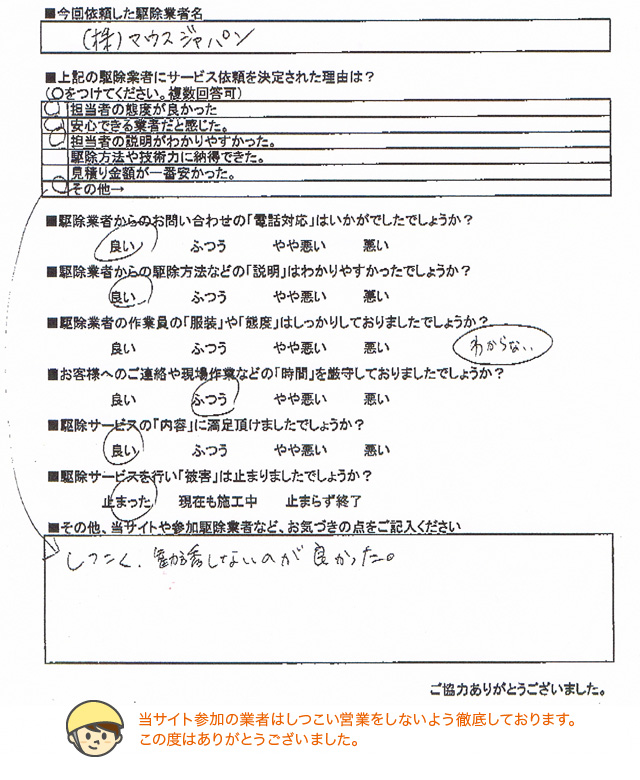 ■今回依頼した駆除業者名
(株)マウスジャパン
■上記の駆除業者にサービス依頼を決定された理由は？
(○をつけてください。複数回答可)
担当者の態度が良かった
安心できる業者だと感じた。
担当者の説明がわかりやすかった。
駆除方法や技術力に納得できた。
見積り金額が一番安かった。
その他→
■駆除業者からのお問い合わせの「電話対応」はいかがでしたでしょうか？
良い ふつう やや悪い 悪い
■駆除業者からの駆除方法などの「説明」はわかりやすかったでしょうか？
良い ふつう やや悪い 悪い
■駆除業者の作業員の「服装」や「態度」はしっかりしておりましたでしょうか？
良い ふつう やや悪い 悪い わからない
■お客様へのご連絡や現場作業などの「時間」を厳守しておりましたでしょうか？
良い ふつう やや悪い 悪い
■駆除サービスの「内容」に満足頂けましたでしょうか？
良い ふつう やや悪い 悪い
■駆除サービスを行い「被害」は止まりましたでしょうか？
止まった 現在も施工中 止まらず終了
■その他、当サイトや参加駆除業者など、お気づきの点をご記入ください
しつこく、勧誘しないのが良かった。
ご協力ありがとうございました。
当サイト参加の業者はしつこい営業をしないよう徹底しております。
この度はありがとうございました。